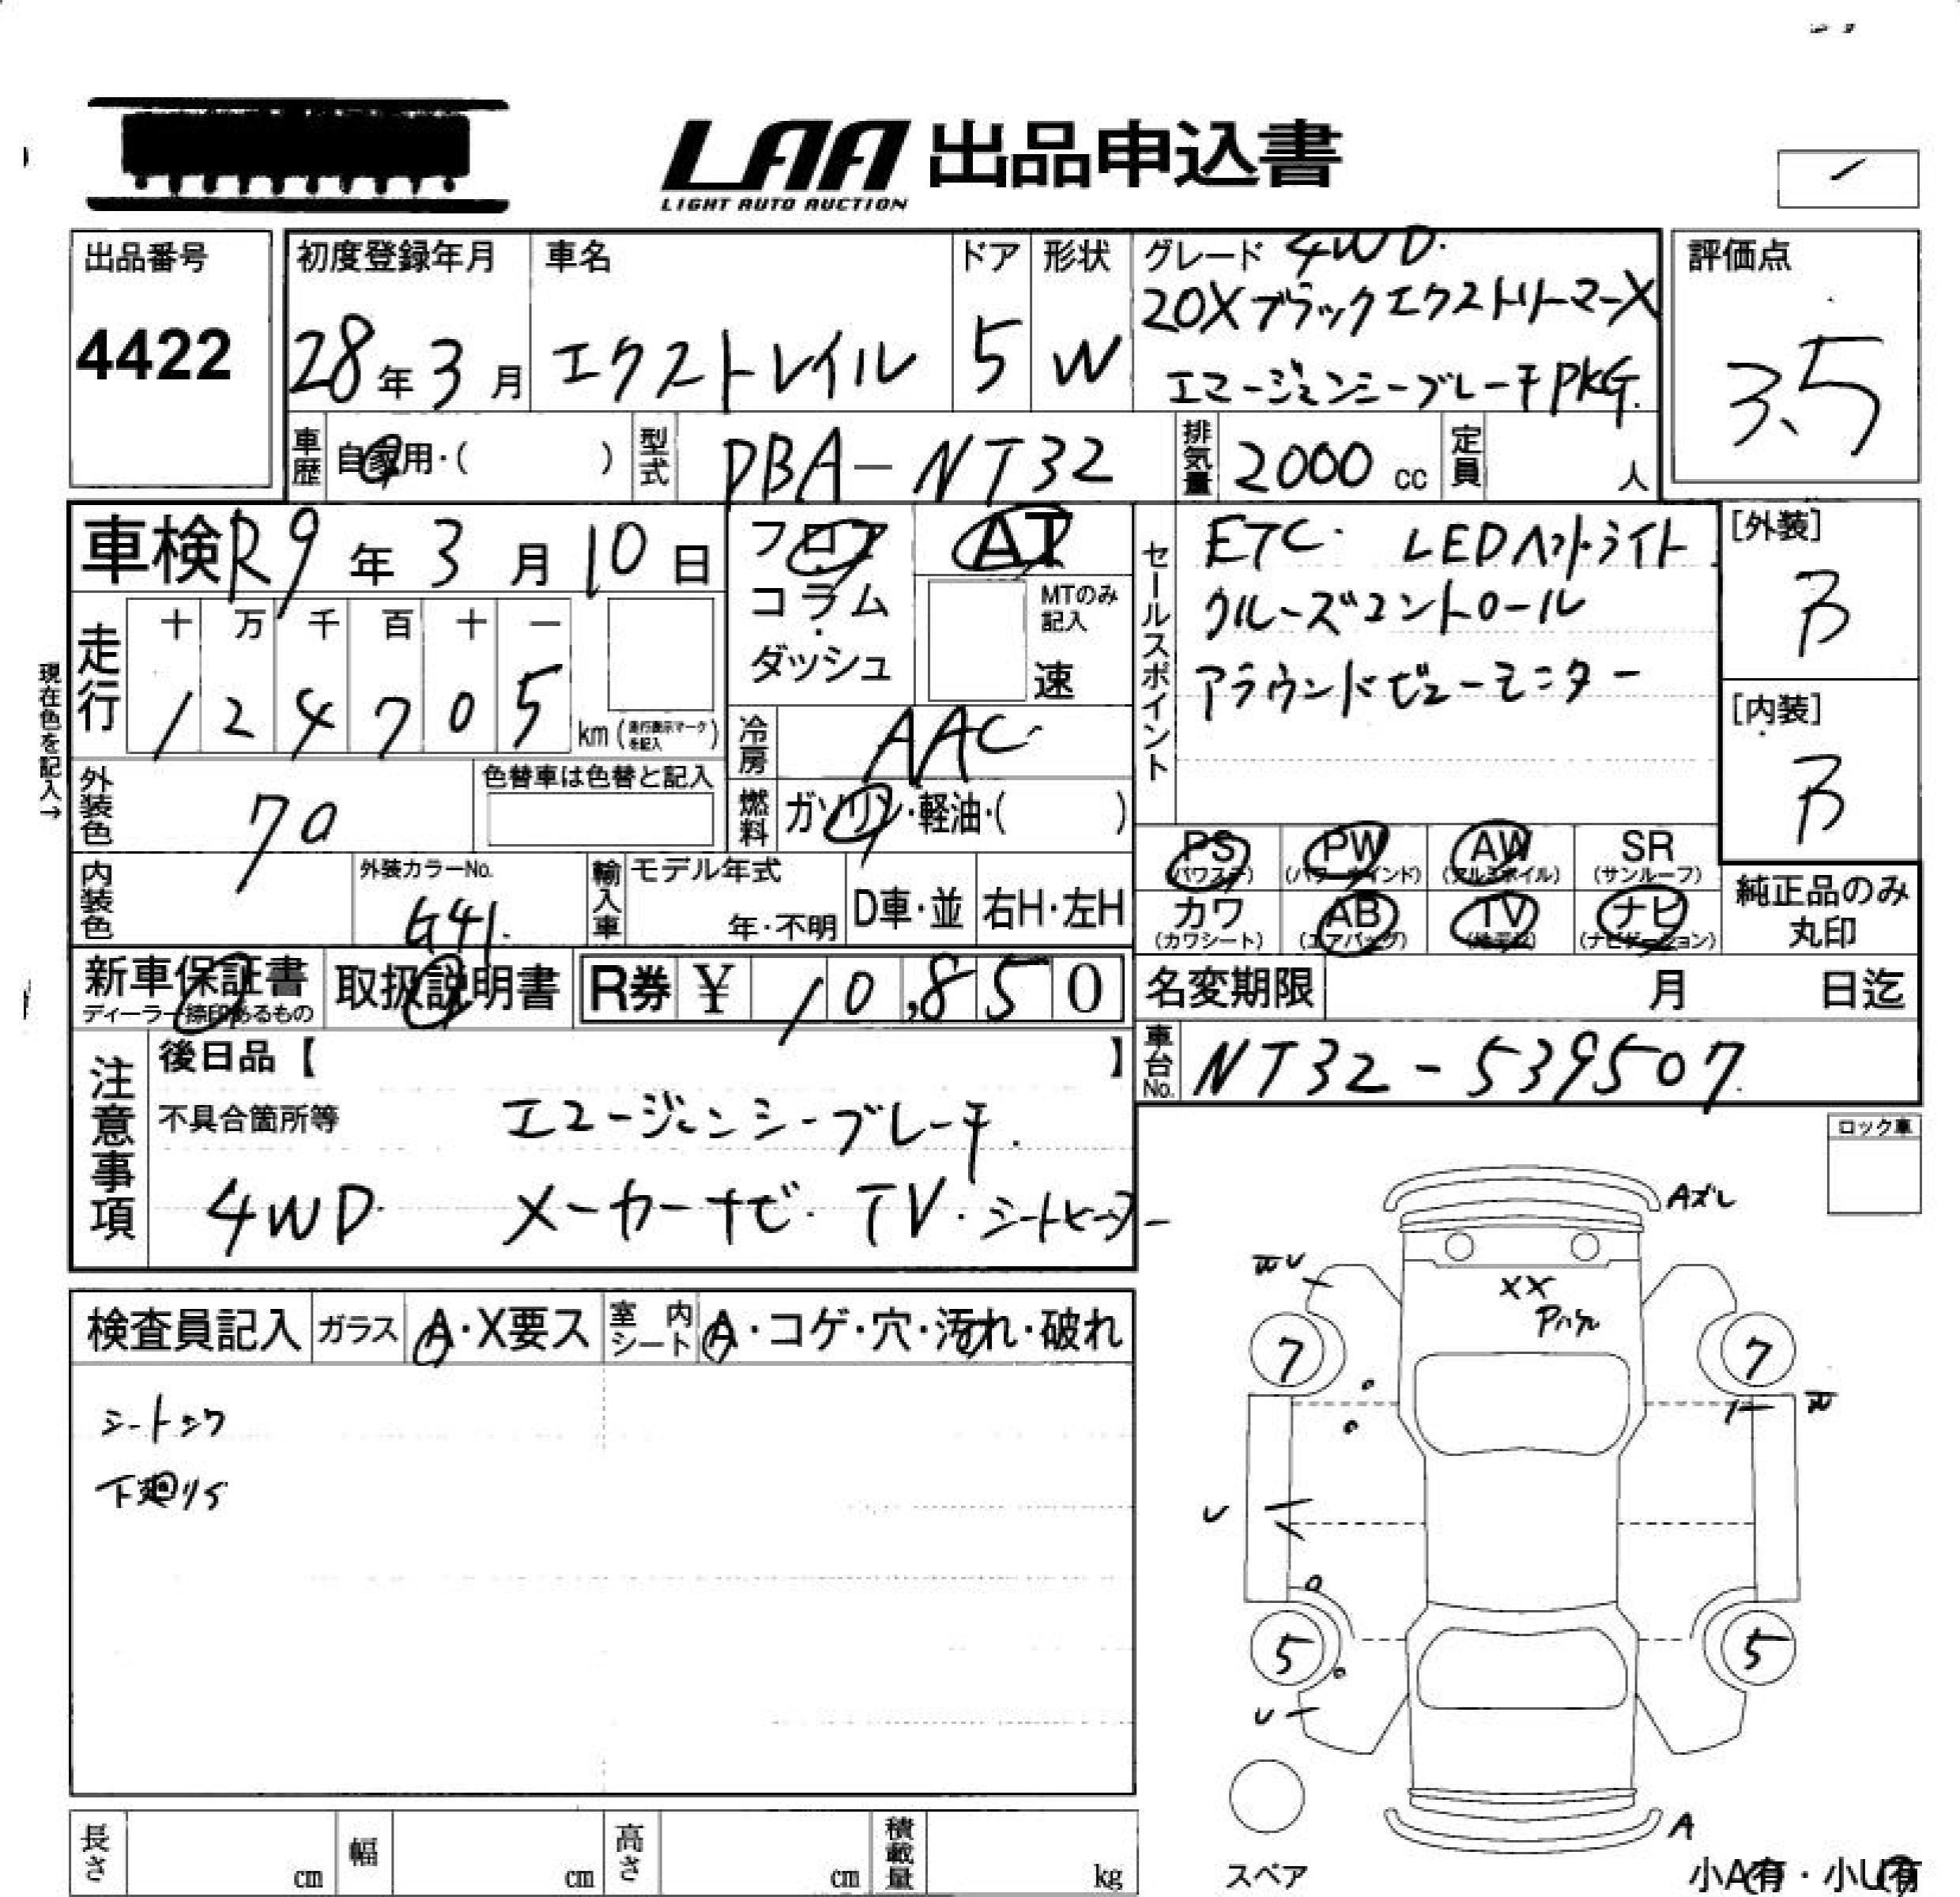 LAA 出品申込書
LIGHT AUTO AUCTION
出品番号
4422
初度登録年月
28年3月
車名
エクストレイル
ドア
5
形状
W
グレード 4WD.
20Xブラックエクストリーマ-X
エマージェンシーブレーキPKG.
評価点
3.5
車歴 自家用・( )
型式 DBA-NT32
排気量 2000 cc
定員 人
車検 R9年3月10日
フロア
コラム
・
ダッシュ
AT
MTのみ記入
速
走行
十 万 千 百 十 一
1 2 4 7 0 5 km (走行表示マークを記入)
現在色を記入→
冷房 AAC
燃料 ガソリン・軽油・( )
外装色
色替車は色替と記入
内装色
外装カラーNo.
G41.
輸入車
モデル年式
年・不明
D車・並
右H・左H
セールスポイント
ETC. LEDヘッドライト
クルーズコントロール
アラウンドビューモニター
[外装]
B
[内装]
B
PS (パワステ)
PW (パワーウインド)
AW (アルミホイル)
SR (サンルーフ)
カワ (カワシート)
AB (エアバッグ)
TV
ナビ (ナビゲーション)
純正品のみ
丸印
新車保証書
ディーラー捺印あるもの
取扱説明書
R券 ¥ 10,850
名変期限 月 日迄
車台No. NT32-539507
注意事項
後日品【 】
不具合箇所等 エマージェンシーブレーキ.
4WD. メーカーナビ・TV・シートヒーター
ロック車
検査員記入
ガラス A・X要ス
室内シート A・コゲ・穴・汚れ・破れ
シートシワ
下廻りS
Aズレ
XX
7
7
U
5
5
U
A
スペア
小A有・小U有
長さ cm
幅 cm
高さ cm
積載量 kg